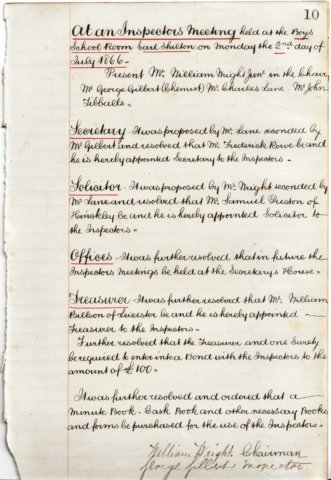 10
At an Inspectors Meeting held at the Boys
School Room Earl Shilton on Monday the 2nd day of
July 1866 -
Present Mr. William Wright Junr in the Chair
Mr George Gilbert (Chemist) Mr. Charles Lane Mr John
Tibballs -
Secretary It was proposed by Mr. Lane seconded by
Mr Gilbert and resolved that Mr. Frederick Rowe be and
he is hereby appointed Secretary to the Inspectors -
Solicitor - It was proposed by Mr. Wright seconded by
Mr Lane and resolved that Mr. Samuel Preston of
Hinckley be and he is hereby appointed Solicitor to
the Inspectors -
Offices - It was further resolved that in future the
Inspectors Meetings be held at the Secretary's House -
Treasurer It was further resolved that Mr. William
Billson of Leicester be and he is hereby appointed
Treasurer to the Inspectors -
Further resolved that the Treasurer and one Surety
be required to enter into a Bond with the Inspectors to the
amount of £100 -
It was further resolved and ordered that a
Minute Book - Cash Book and other necessary Books
and forms be purchased for the use of the Inspectors -
William Wright Chairman
George Gilbert Inspector